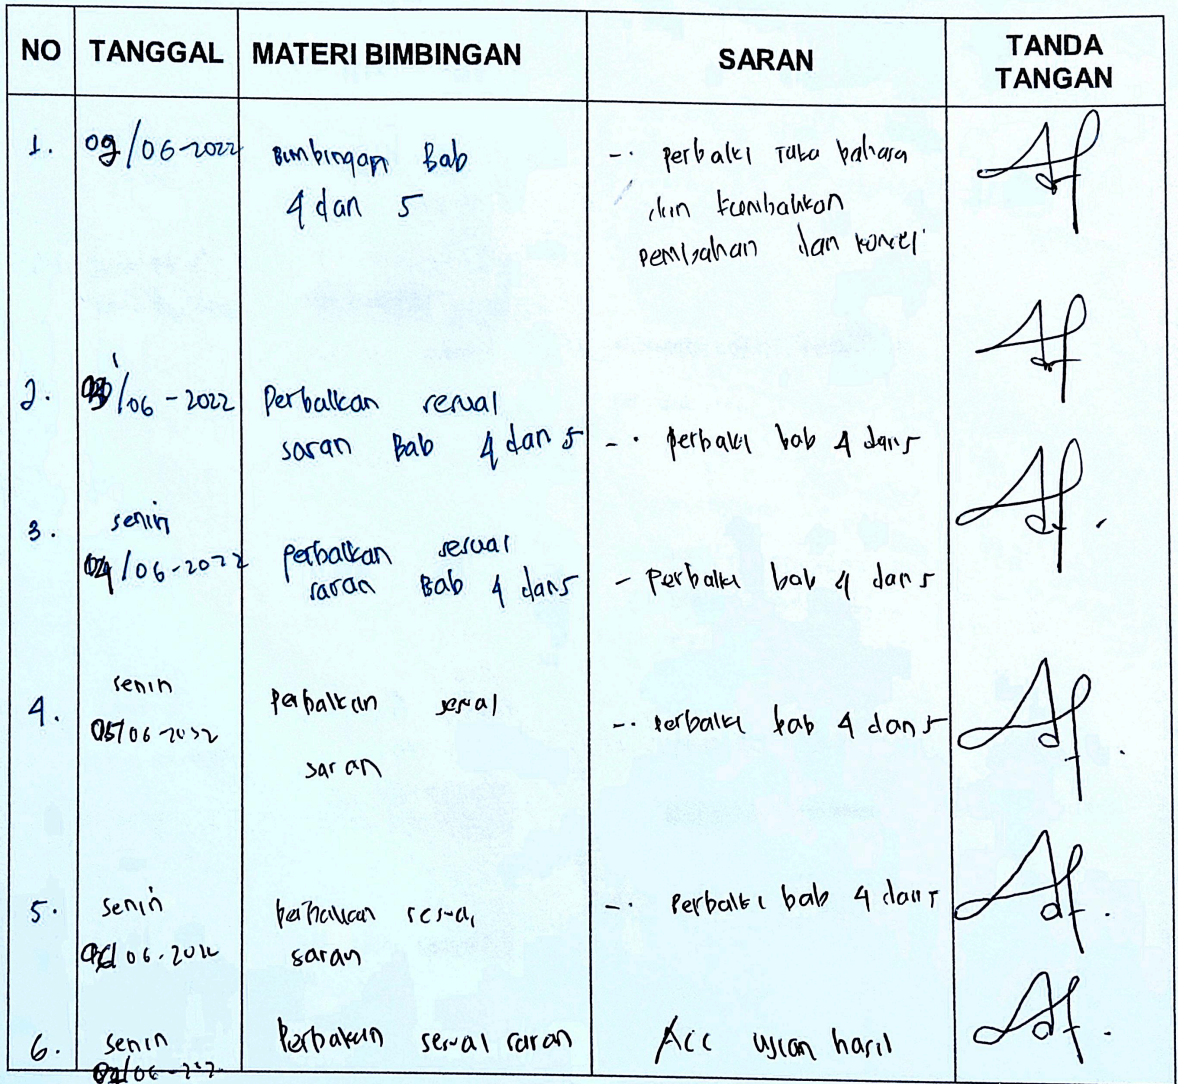 NO TANGGAL MATERI BIMBINGAN SARAN TANDA
TANGAN
1. 09/06-2022 Bimbingan Bab
4 dan 5
-. perbaiki Tata bahasa
dan tambahkan
pembahan dan
2. /06-2022 Perbaikan sesuai
saran Bab 4 dan 5 -. perbaiki bab 4 dan 5
3. senin
04/06-2022 perbaikan sesuai
saran Bab 4 dan 5 - perbaiki bab 4 dan 5
4. senin
05/06-2022 perbaikan sesuai
saran
-. perbaiki bab 4 dan 5
5. senin
06-2022 perbaikan sesuai
saran
-. Perbaiki bab 4 dan 5
6. senin Perbaikan sesuai saran Acc ujian hasil